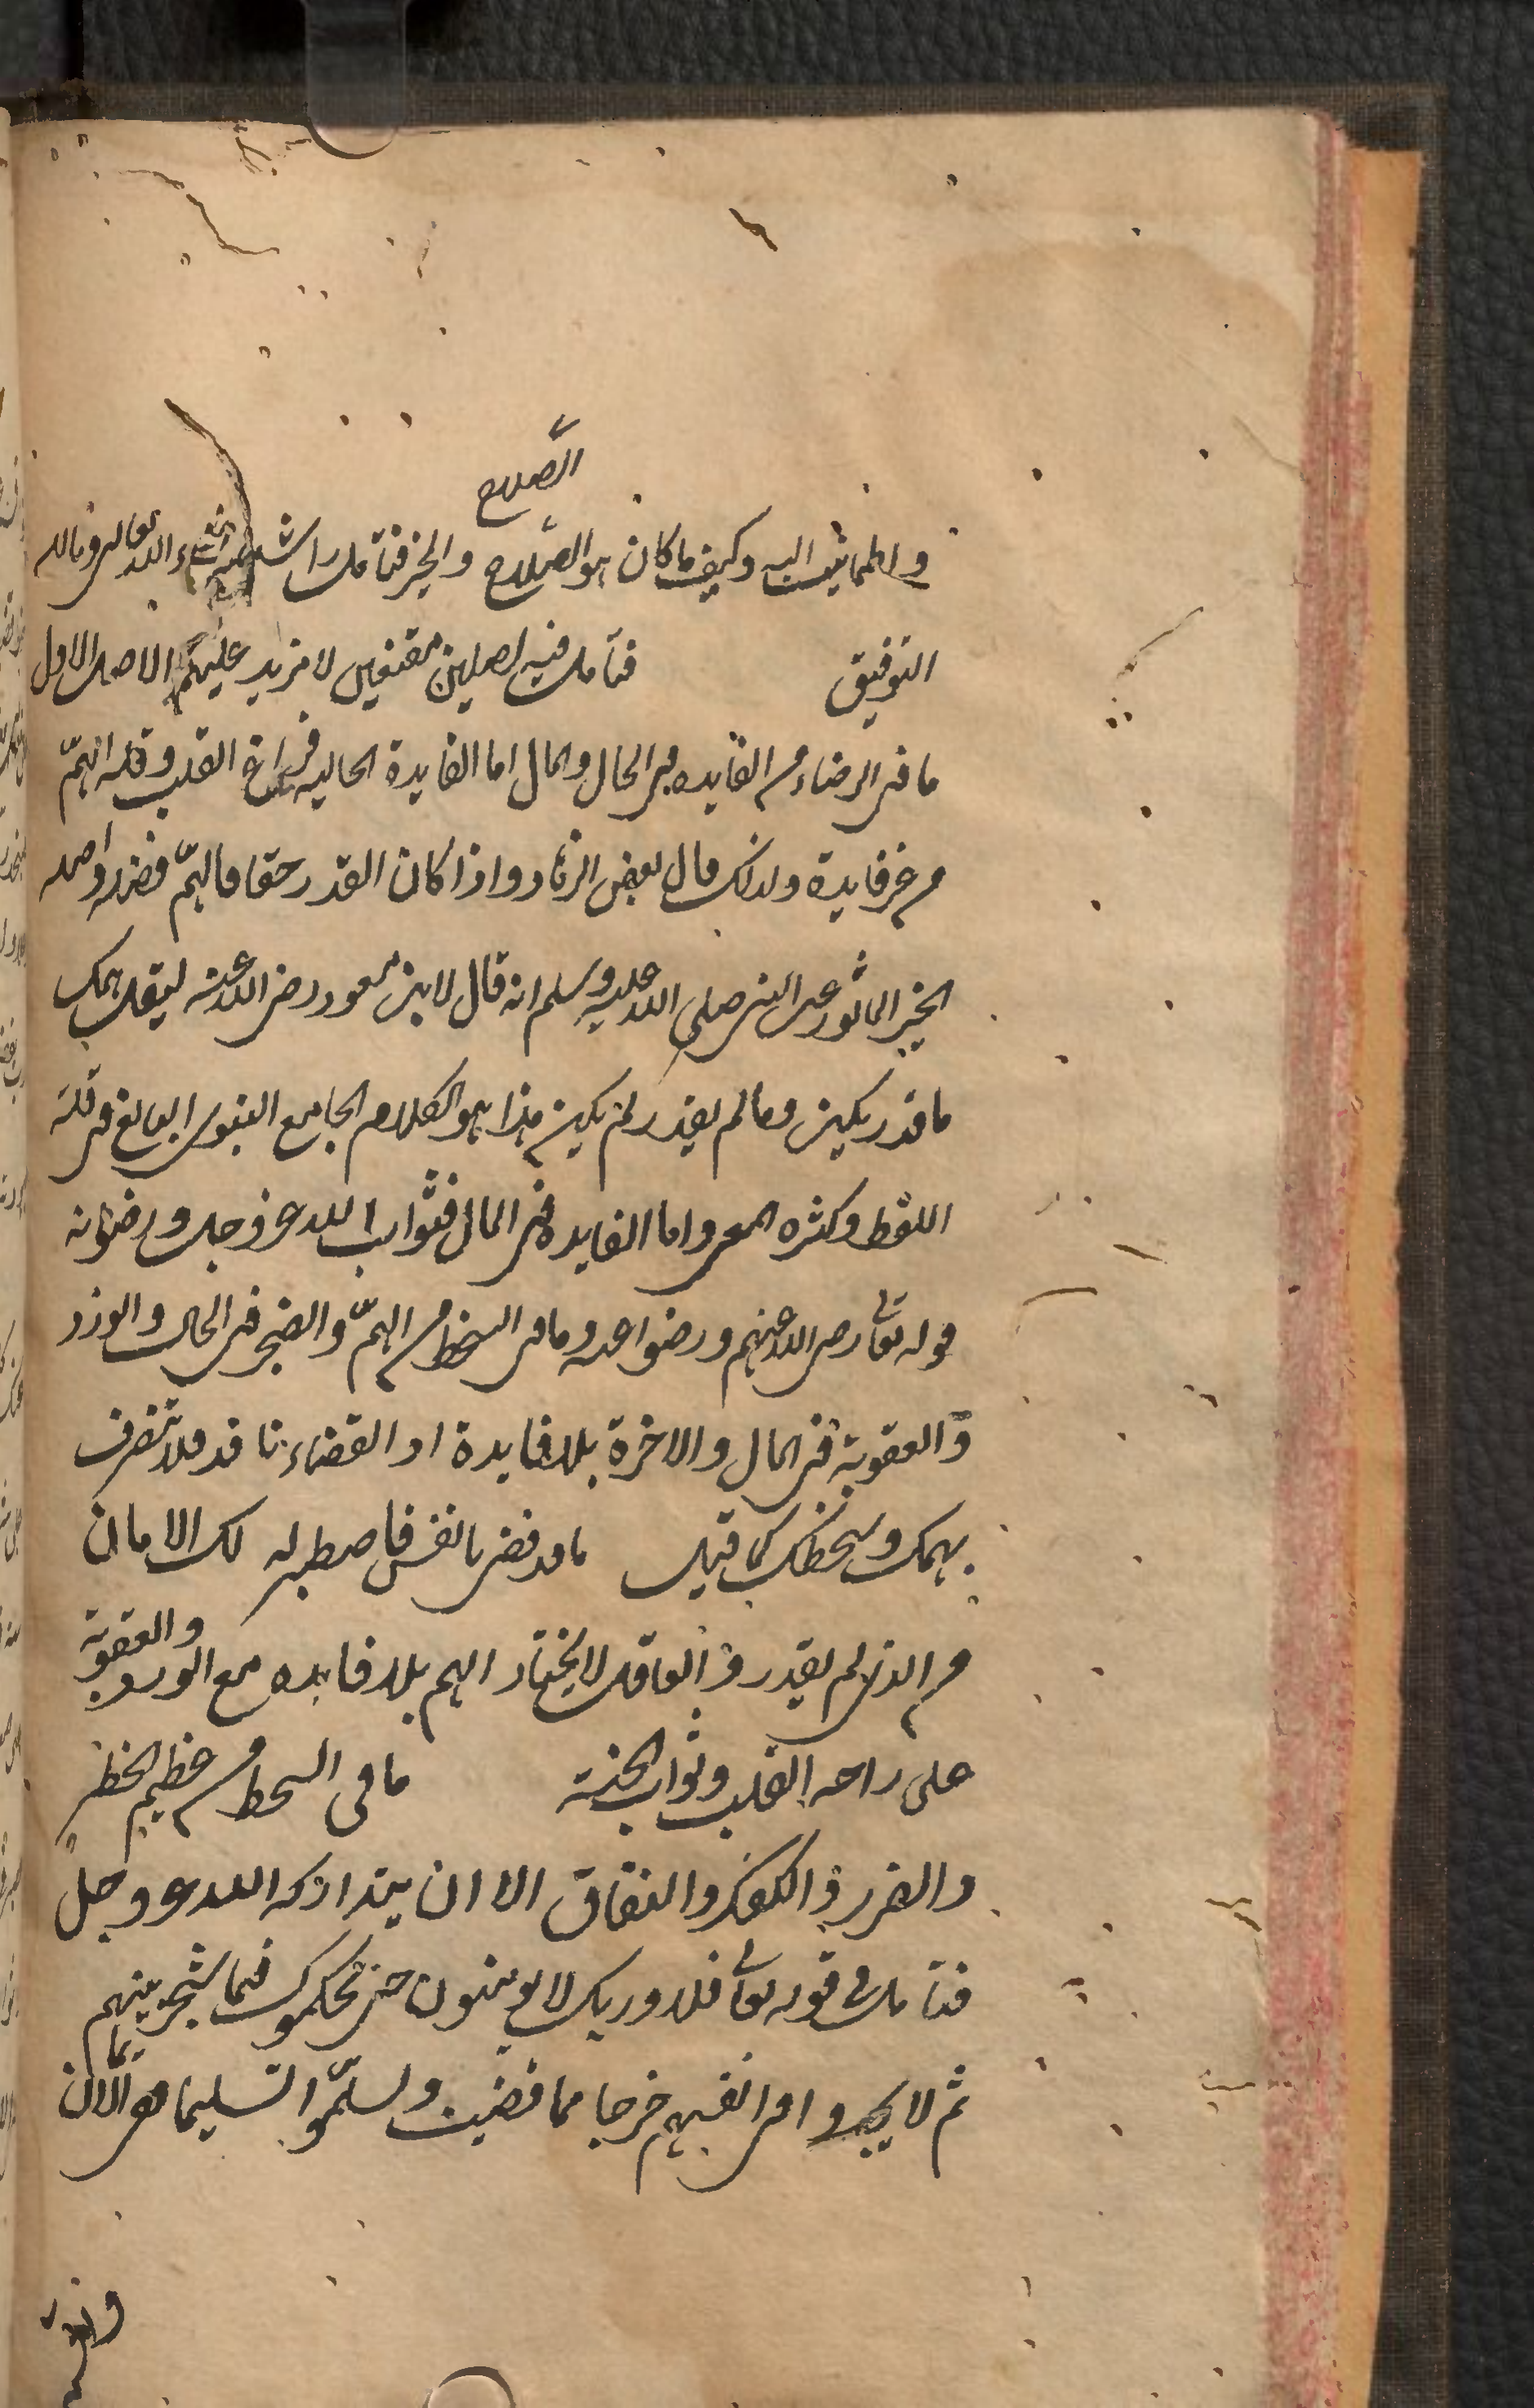 الصلاح
واطمانيت اليه وكيف ما كان هو الصلاح والخير فتامل راشدا ان شاء الله تعالى وبالله
التوفيق فتامل فيه اصلين مقنعين لا مزيد عليهما الاصل الاول
ما فى الرضاء من الفايده فى الحال والمال اما الفايدة الحاليه فراغ القلب وقله الهمّ
من غير فايدة ولذلك قال بعض الزهاد واذا كان القدر حقا فالهمّ فضل واصله
الخبر الماثور عن النبى صلى الله عليه وسلم انه قال لابن مسعود رضى الله عنه ليقل همك
ما قدر يكن وما لم يقدر لم يكن هذا هو الكلام الجامع النبوى البالغ فى قلة
اللفظ وكثره المعنى واما الفايده فى المال فثواب الله عز وجل ورضوانه
قوله تعا رضى الله عنهم ورضوا عنه وما فى السخط من الهمّ والضجر فى الحال والوزر
والعقوبة فى المال والاخرة بلا فايدة اذ القضاء نافذ فلا تنصرف
بهمك وسخطك كما قيل ما قد قضى يا نفس فاصطبرى له لك الامان
من الذى لم يقدر والعاقل لا يختار الهم بلا فايده مع الوزر والعقوبة
على راحه القلب وثواب الجنة ما فى السخط من عظيم الخطر
والضرر والكفر والنفاق الا ان يتداركه الله عز وجل
فتامل فى قوله تعا فلا وربك لا يومنون حتى يحكموك فيما شجر بينهم
ثم لا يجدوا فى انفسهم حرجا مما قضيت ويسلّموا تسليما الايمان